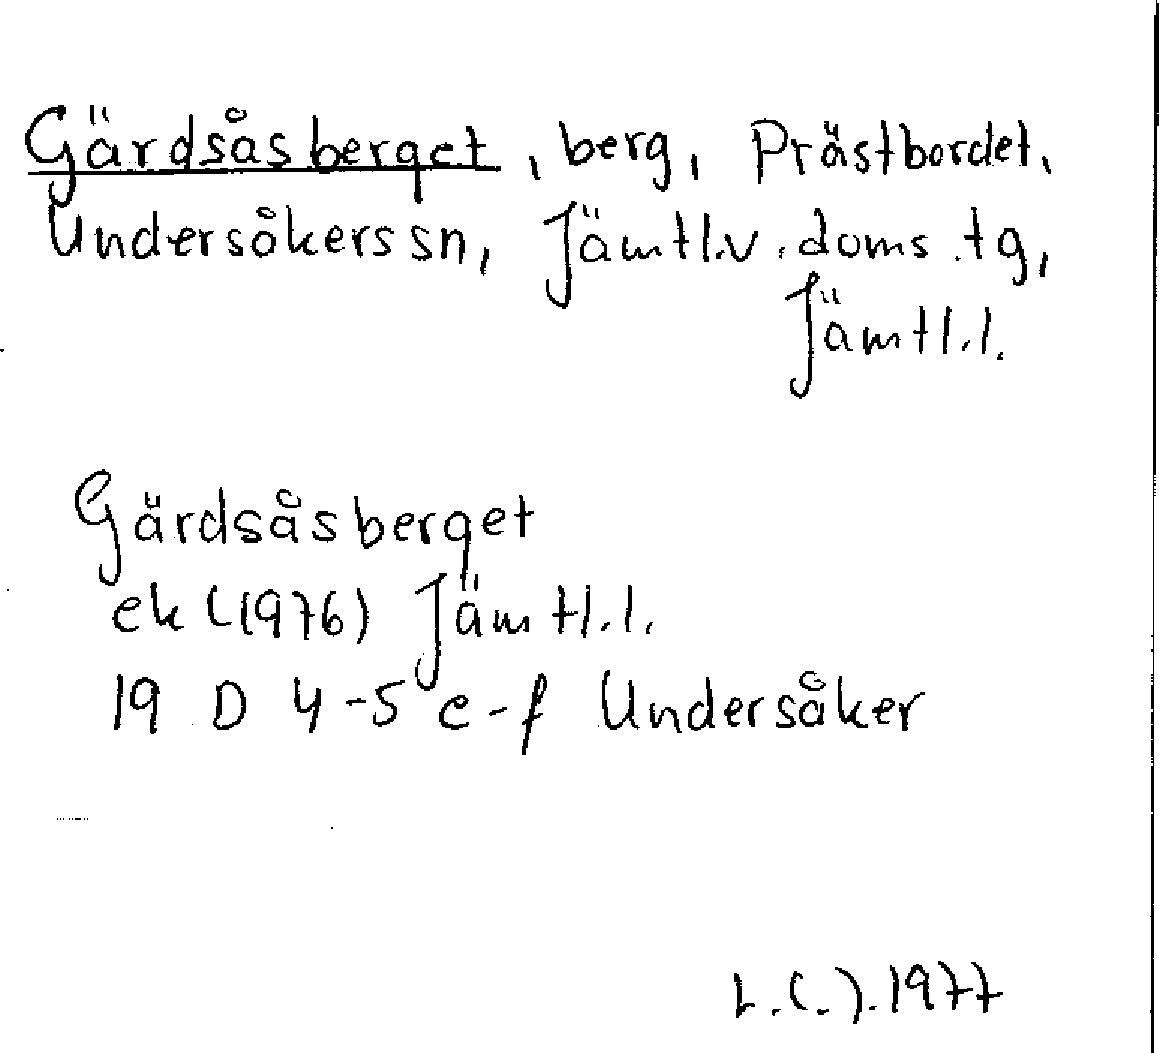 Gärdsåsberget, berg, Prästbordet,
Undersåkers sn, Jämtl.v. doms.tg,
Jämtl.l.
Gärdsåsberget
ek (1976) Jämtl.l.
19 D 4-5 e-f Undersåker
1977